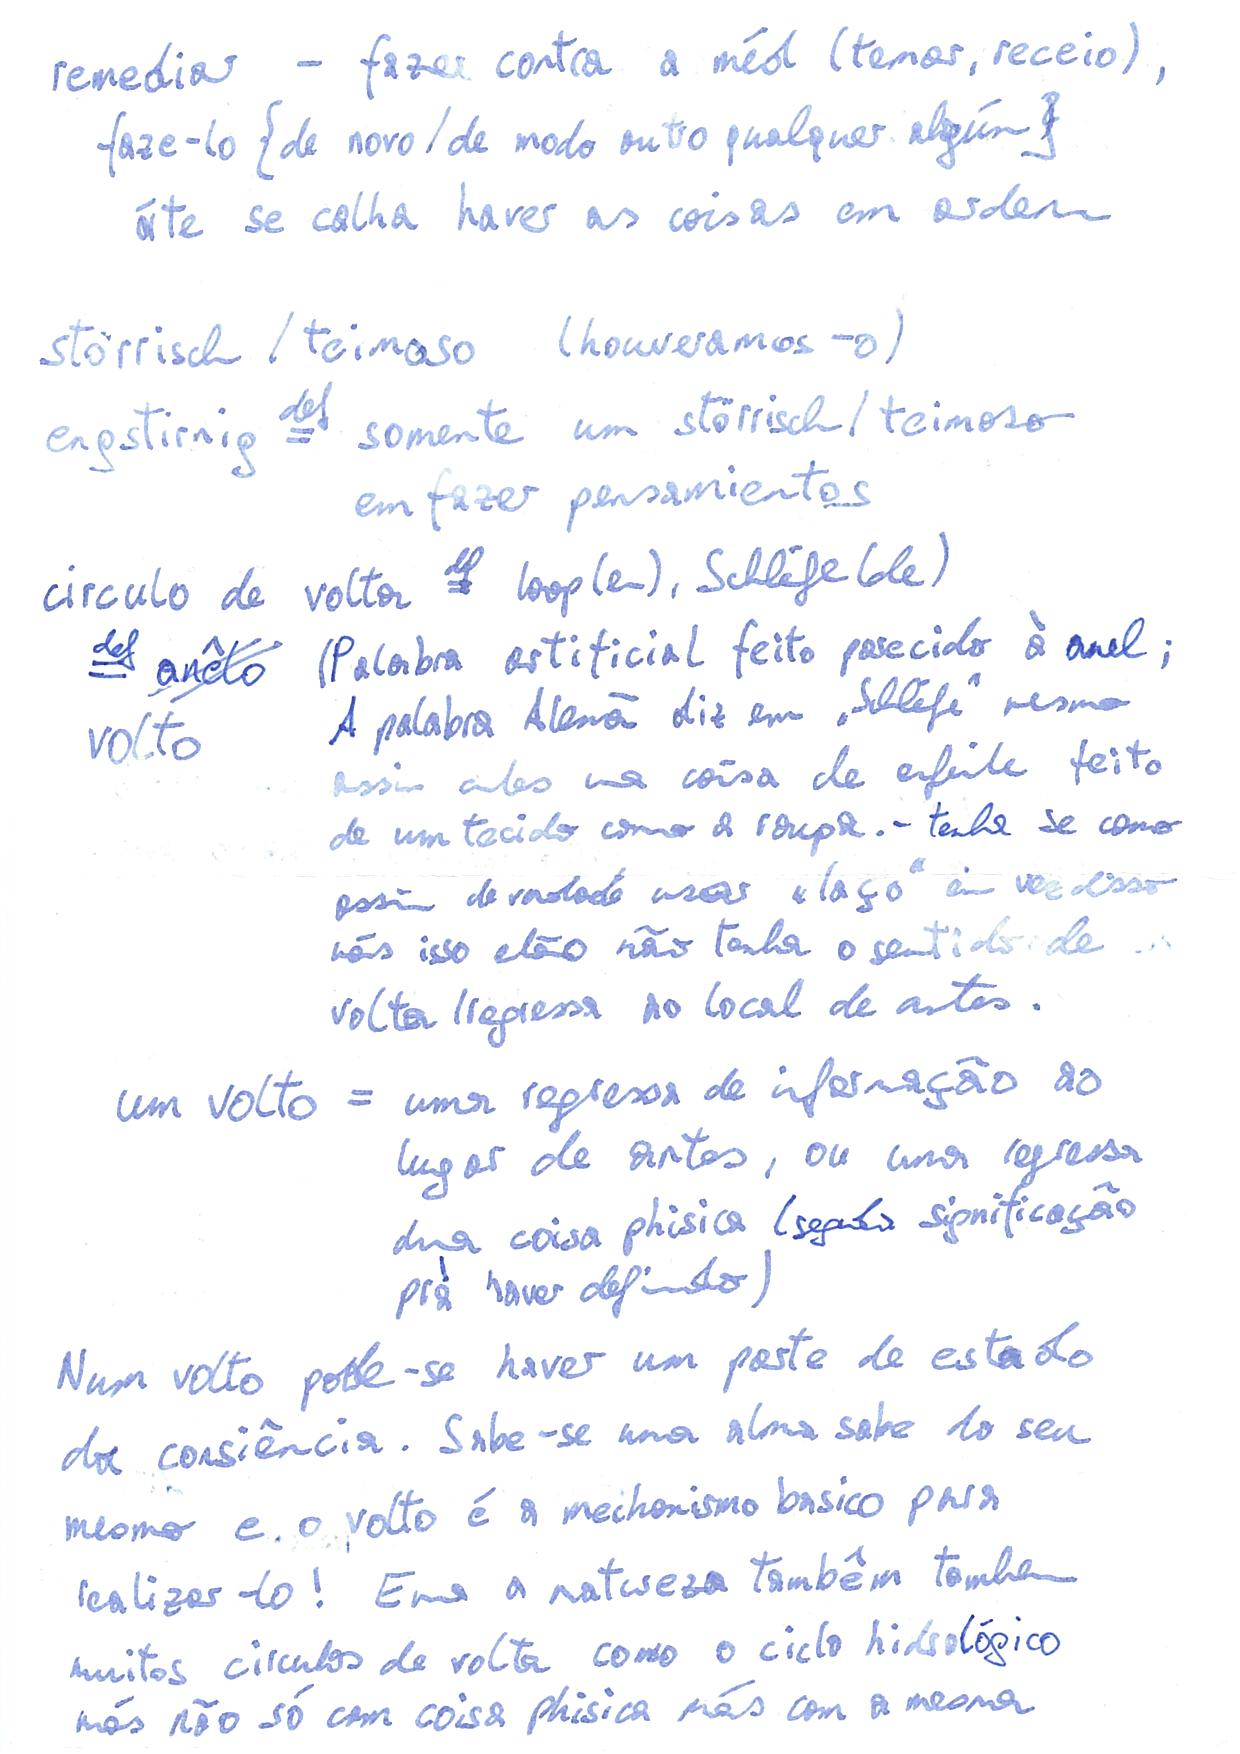 remediar – fazer contra a méd (temor, receio),
faze-lo {de novo/de modo outro qualquer algún}
áte se calha haver as coisas em ordem
störrisch / teimoso (houveramos-o)
engstirnig def= somente um störrisch/teimoso
em fazer pensamientos
circulo de volta def= loop(en), Schlêfe(de)
def= anêto (Palabra artificial feito parecido à anel;
volto A palabra Alemã diz em „Schlêfe“ mesmo
assim coisa de enfeite feito
de um tecido como a roupa. - tenha se como
assim de verdade usar „laço“ em vez disso
más isso não tenha o sentido de
volta/regressa ao local de antes.
um volto = uma regressa de informação ao
lugar de antes, ou uma regressa
duma coisa phisica (segunda significação
prá haver definido)
Num volto pode-se haver um parte de estado
da consiência. Sabe-se uma alma sabe lo seu
mesmo e o volto é a mechanismo basico para
realizar-lo! Ema a natureza também tomhem
muitos circulos de volta como o ciclo hidrológico
más não só com coisa phisica más com a mesma